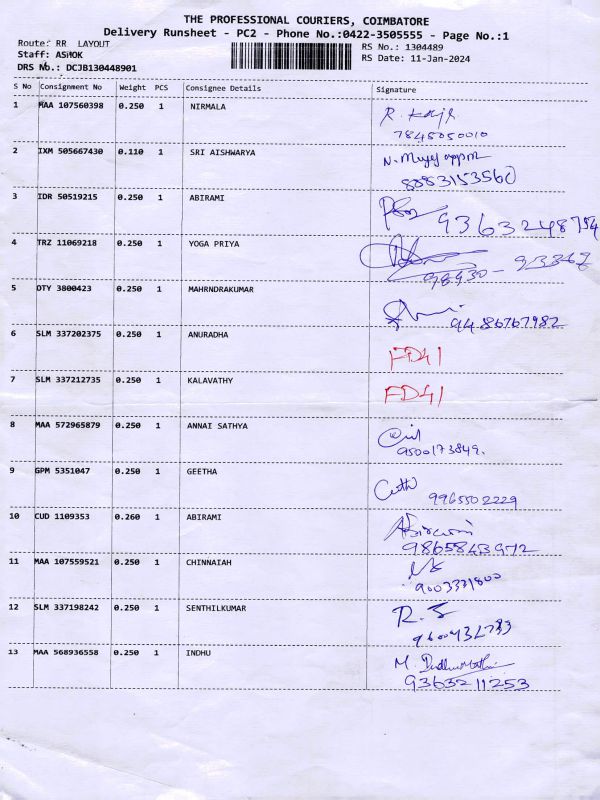 THE PROFESSIONAL COURIERS, COIMBATORE
Delivery Runsheet - PC2 - Phone No.:0422-3505555 - Page No.:1
Route: RR LAYOUT
RS No.: 1304489
Staff: ASHOK
RS Date: 11-Jan-2024
DRS No.: DCJB130448901
S No Consignment No Weight PCS Consignee Details Signature
1 MAA 107560398 0.250 1 NIRMALA
7845050010
2 IXM 505667430 0.110 1 SRI AISHWARYA
8883153560
3 IDR 50519215 0.250 1 ABIRAMI
9363248754
4 TRZ 11069218 0.250 1 YOGA PRIYA
98930 - 93362
5 OTY 3800423 0.250 1 MAHRNDRAKUMAR
9486767982
6 SLM 337202375 0.250 1 ANURADHA
FD41
7 SLM 337212735 0.250 1 KALAVATHY
FD41
8 MAA 572965879 0.250 1 ANNAI SATHYA
9500173849.
9 GPM 5351047 0.250 1 GEETHA
9965502229
10 CUD 1109353 0.260 1 ABIRAMI
Abirami
9865843972
11 MAA 107559521 0.250 1 CHINNAIAH
9003371800
12 SLM 337198242 0.250 1 SENTHILKUMAR
R. S
13 MAA 568936558 0.250 1 INDHU
M. Indhumathi
9363211253